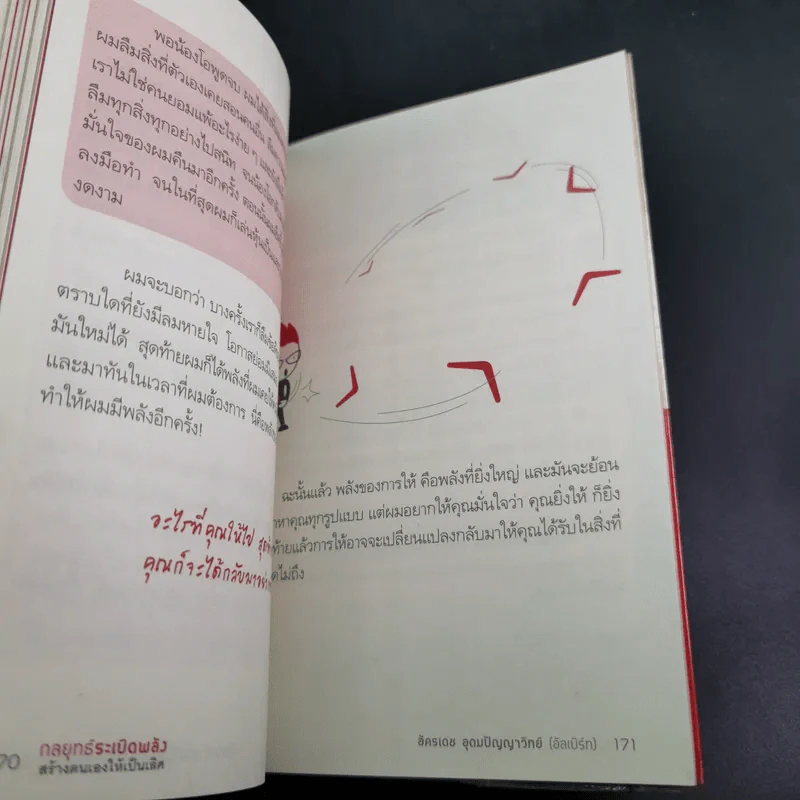 พอน้องโอพูดจบ
ผมลืมสิ่งที่ตัวเองเคยสอนคนอื่น
เราไม่ใช่คนยอมแพ้อะไรง่าย ๆ
ลืมทุกสิ่งทุกอย่างไปสนิท
มั่นใจของผมคืนมาอีกครั้ง ตอนนั้นผม
ลงมือทำ จนในที่สุดผมก็เล่นหุ้น
งดงาม
ผมจะบอกว่า บางครั้งเราก็
ตราบใดที่ยังมีลมหายใจ โอกาสย่อม
มันใหม่ได้ สุดท้ายผมก็ได้พลังที่ผม
และมาทันในเวลาที่ผมต้องการ นี่คือ
ทำให้ผมมีพลังอีกครั้ง!
อะไรที่คุณให้ไป
คุณก็จะได้กลับมา
70 กลยุทธ์ระเบิดพลัง
สร้างตนเองให้เป็นเลิศ
ฉะนั้นแล้ว พลังของการให้ คือพลังที่ยิ่งใหญ่ และมันจะย้อน
หาคุณทุกรูปแบบ แต่ผมอยากให้คุณมั่นใจว่า คุณยิ่งให้ ก็ยิ่ง
ท้ายแล้วการให้อาจจะเปลี่ยนแปลงกลับมาให้คุณได้รับในสิ่งที่
ดไม่ถึง
อัครเดช อุดมปัญญาวิทย์ (อัลเบิร์ท) 171